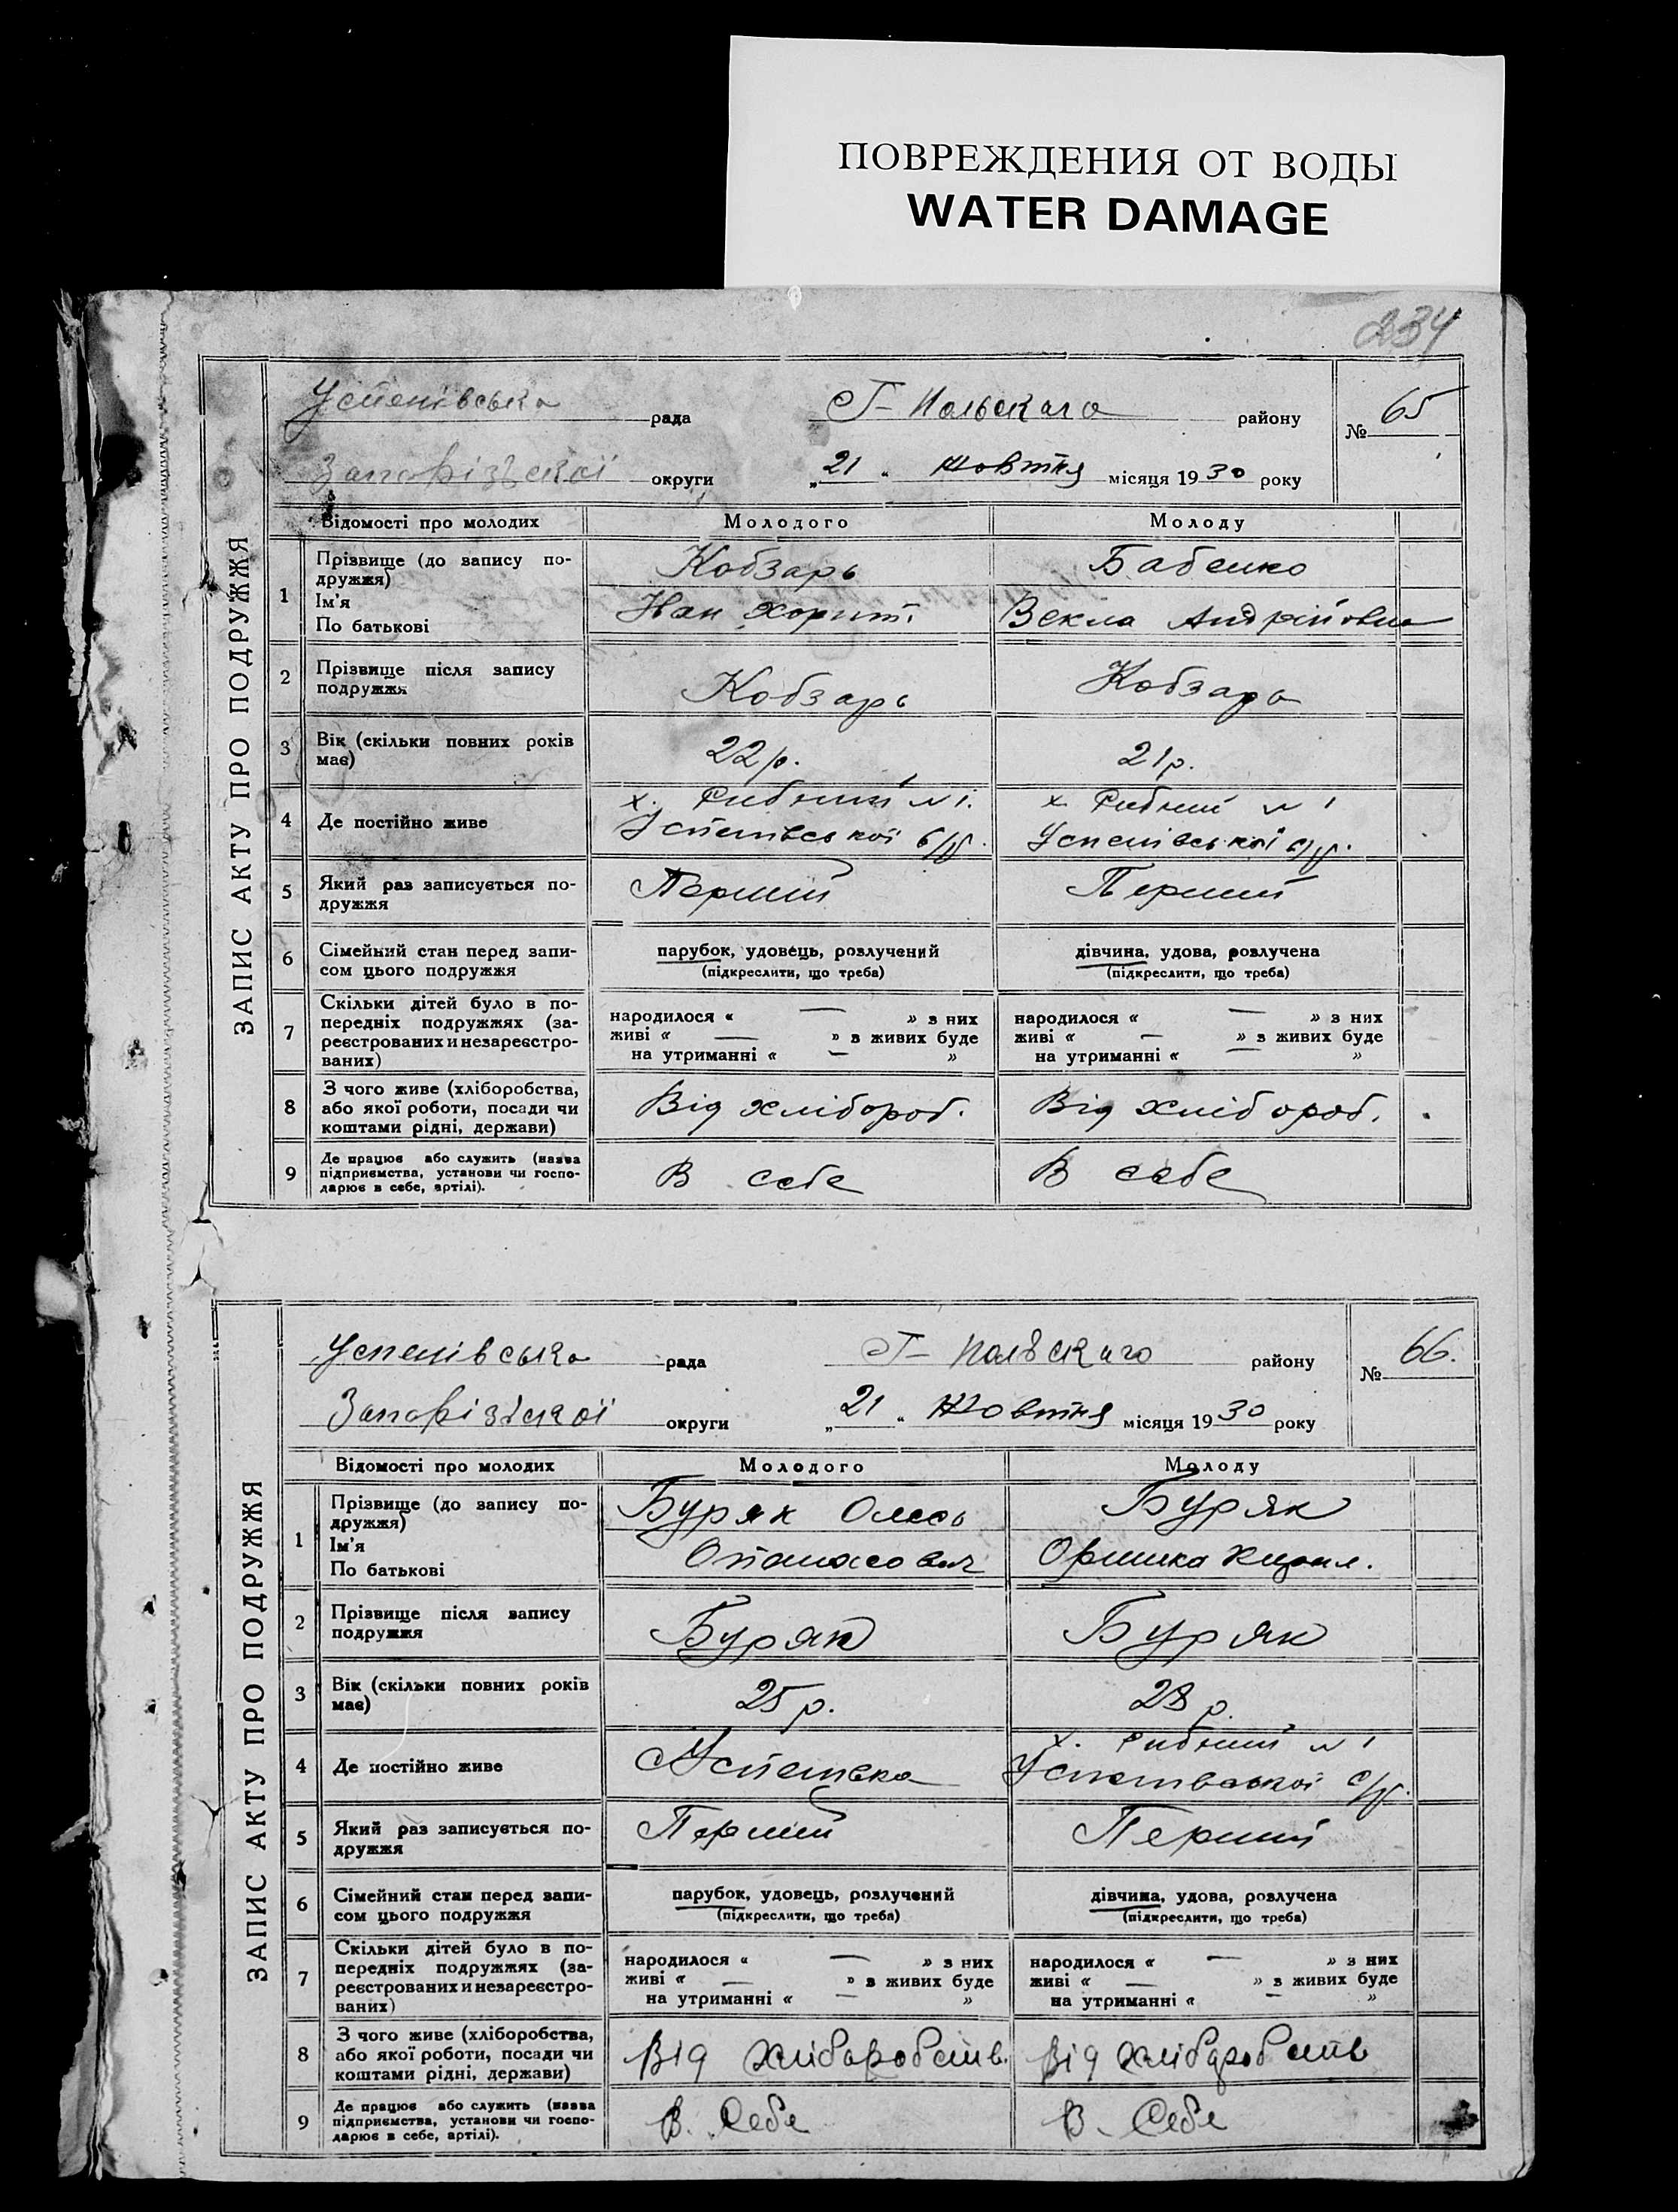 ПОВРЕЖДЕНИЯ ОТ ВОДЫ
WATER DAMAGE
234
ЗАПИС АКТУ ПРО ПОДРУЖЖЯ
Успенівська рада Г-Польскаго району № 65
Запорізьскої округи „21“ Жовтня місяця 1930 року
Відомості про молодих Молодого Молоду
1 Прізвище (до запису по-
дружжя)
Ім'я
По батькові
Кобзарь Бабенко
Іван Хорит. Векла Андрійовна
2 Прізвище після запису
подружжя
Кобзарь Кобзарь
3 Вік (скільки повних років
має)
22 р. 21 р.
4 Де постійно живе
х. Рибний №1. х. Рибний №1
Успенівської с/р. Успенівської с/р.
5 Який раз записується по-
дружжя
Перший Перший
6 Сімейний стан перед запи-
сом цього подружжя
парубок, удовець, розлучений дівчина, удова, розлучена
(підкреслити, що треба) (підкреслити, що треба)
7 Скільки дітей було в по-
передніх подружжях (за-
реєстрованих и незареєстро-
ваних)
народилося « — » з них народилося « — » з них
живі « — » з живих буде живі « — » з живих буде
на утриманні « — » на утриманні « — »
8 З чого живе (хліборобства,
або якої роботи, посади чи
коштами рідні, держави)
Від хлібороб. Від хлібороб.
9 Де працює або служить (назва
підприємства, установи чи госпо-
дарює в себе, артілі).
В себе В себе
ЗАПИС АКТУ ПРО ПОДРУЖЖЯ
Успенівська рада Г-Польскаго району № 66.
Запорізьскої округи „21“ Жовтня місяця 1930 року
Відомості про молодих Молодого Молоду
1 Прізвище (до запису по-
дружжя)
Ім'я
По батькові
Буряк Олесь Буряк
Опанасович Оришка Кирил.
2 Прізвище після запису
подружжя
Буряк Буряк
3 Вік (скільки повних років
має)
25 р. 28 р.
4 Де постійно живе
Успенівка х. Рибний №1
Успенівської с/р.
5 Який раз записується по-
дружжя
Перший Перший
6 Сімейний стан перед запи-
сом цього подружжя
парубок, удовець, розлучений дівчина, удова, розлучена
(підкреслити, що треба) (підкреслити, що треба)
7 Скільки дітей було в по-
передніх подружжях (за-
реєстрованих и незареєстро-
ваних)
народилося « — » з них народилося « — » з них
живі « — » з живих буде живі « — » з живих буде
на утриманні « — » на утриманні « — »
8 З чого живе (хліборобства,
або якої роботи, посади чи
коштами рідні, держави)
Від хліборобств. Від хліборобств
9 Де працює або служить (назва
підприємства, установи чи госпо-
дарює в себе, артілі).
В. Себе В. Себе